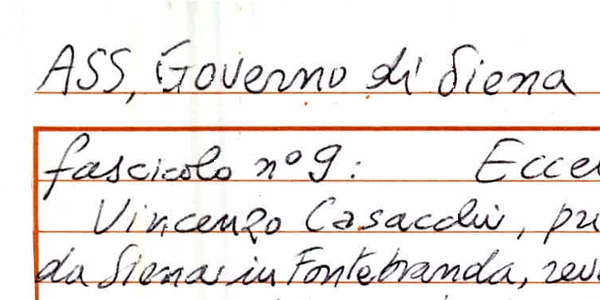 ASS, Governo di Siena
fascicolo n° 9: Ecce
Vincenzo Casacchi, pu
da Siena in Fontebranda, rev